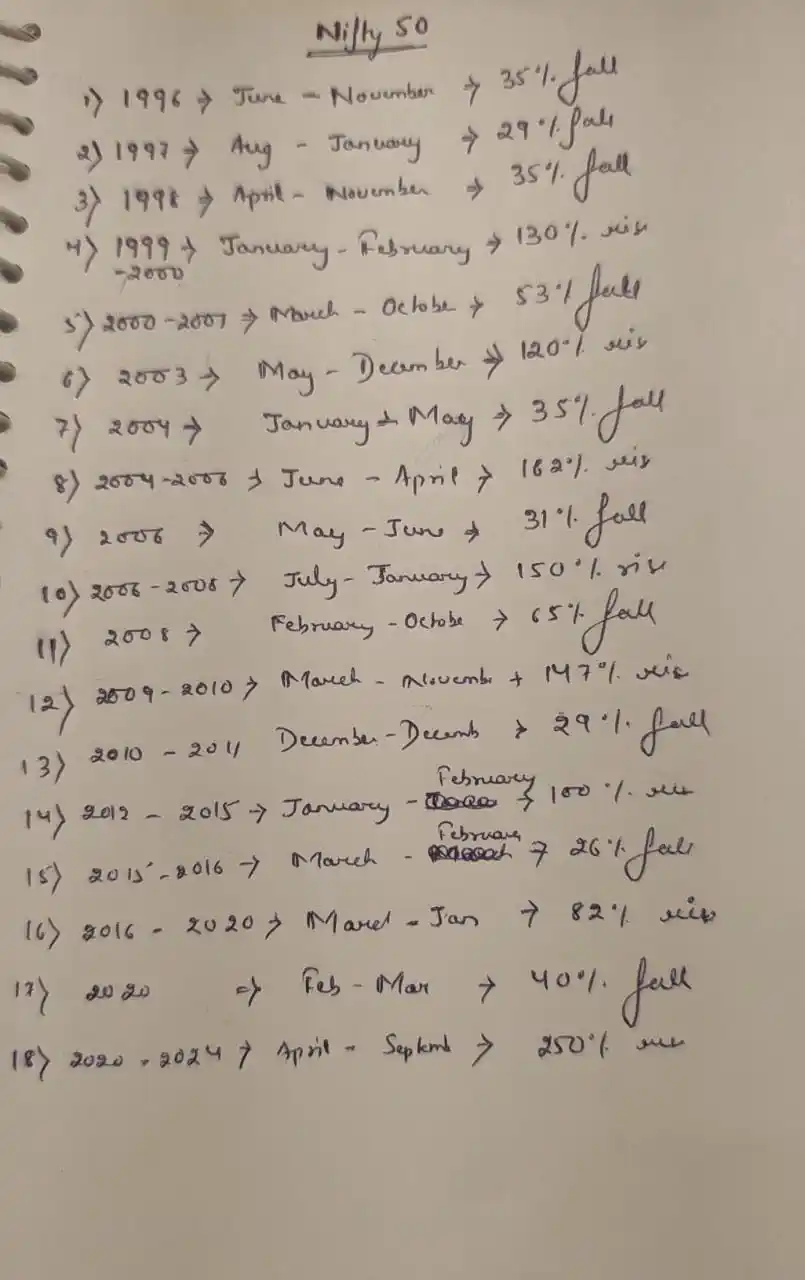 Nifty 50
1) 1996 → June - November → 35% fall
2) 1997 → Aug - January → 29% fall
3) 1998 → April - November → 35% fall
4) 1999 → January - February → 130% rise
-2000
5) 2000-2001 → March - Octobe → 53% fall
6) 2003 → May - December → 120% rise
7) 2004 → January → May → 35% fall
8) 2004-2006 → June - April → 162% rise
9) 2006 → May - June → 31% fall
10) 2006-2008 → July - January → 150% rise
11) 2008 → February - Octobe → 65% fall
12) 2009-2010 → March - Novembe → 147% rise
13) 2010 - 2011 December - Decemb → 29% fall
14) 2012 - 2015 → January - February → 100% rise
15) 2015-2016 → March - February → 26% fall
16) 2016 - 2020 → March - Jan → 82% rise
17) 2020 ⇒ Feb - Mar → 40% fall
18) 2020 - 2024 → April - Septemb → 250% rise